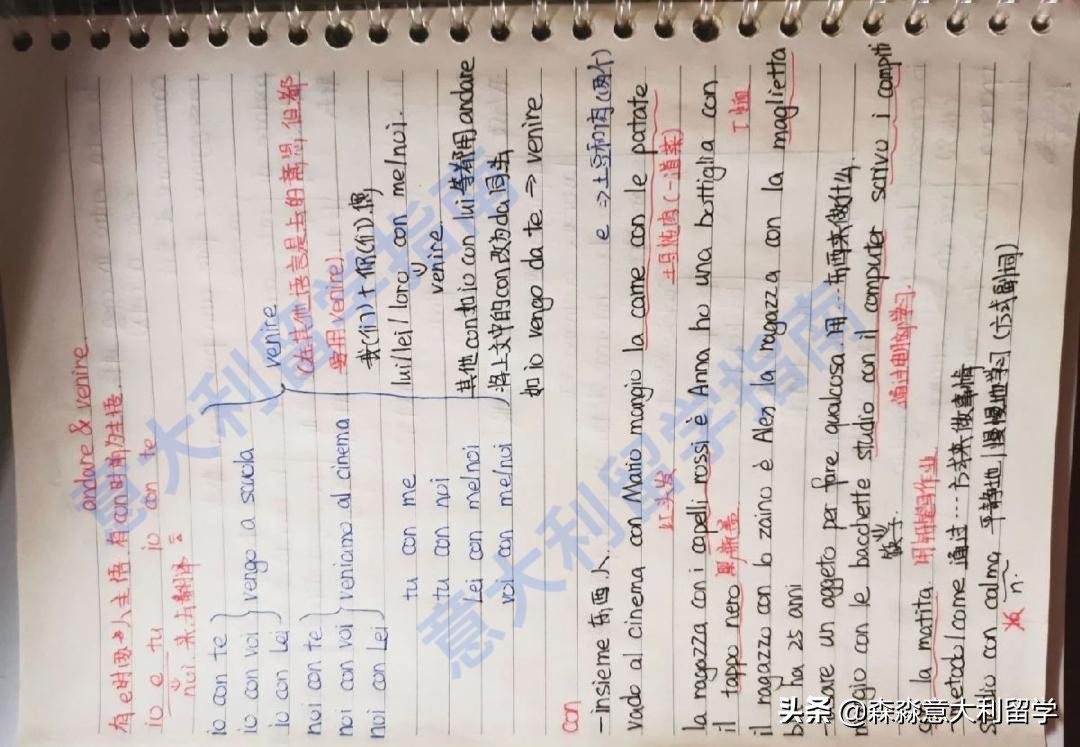 andare & venire
有e时两个主语 有con时前为主语
io e tu io con te
noi 来为翻译
io con te
io con voi } vengo a scuola
io con Lei
noi con te
noi con voi } veniamo al cinema
noi con Lei
venire
(在其他语言是去的意思，但都
要用venire)
我(们)+你(们)/您
tu con me
tu con noi
Lei con me/noi
voi con me/noi
lui/lei/loro con me/noi.
venire
其他con如io con lui等都用andare
将上文中的con改为da同法
如io vengo da te → venire
con
-insieme 东西/人 e → 土豆和肉(两个)
vado al cinema con Mario mangio la carne con le patate
红头发 土豆炖肉(一道菜)
la ragazza con i capelli rossi è Anna ho una bottiglia con
il tappo nero 黑瓶盖 T恤
il ragazzo con lo zaino è Alex la ragazza con la maglietta
ha 25 anni
usare un oggeto per fare qualcosa 用…东西来做什么
mangio con le bacchette studio con il computer scrivo i compiti
筷子 通过电脑学习
con la matita 用铅笔写作业
-metodo/come 通过…方式来做事情
studio con calma 平静地/慢慢地学习(方式副词)
n.
意大利留学指南
意大利留学指南
头条 @森淼意大利留学